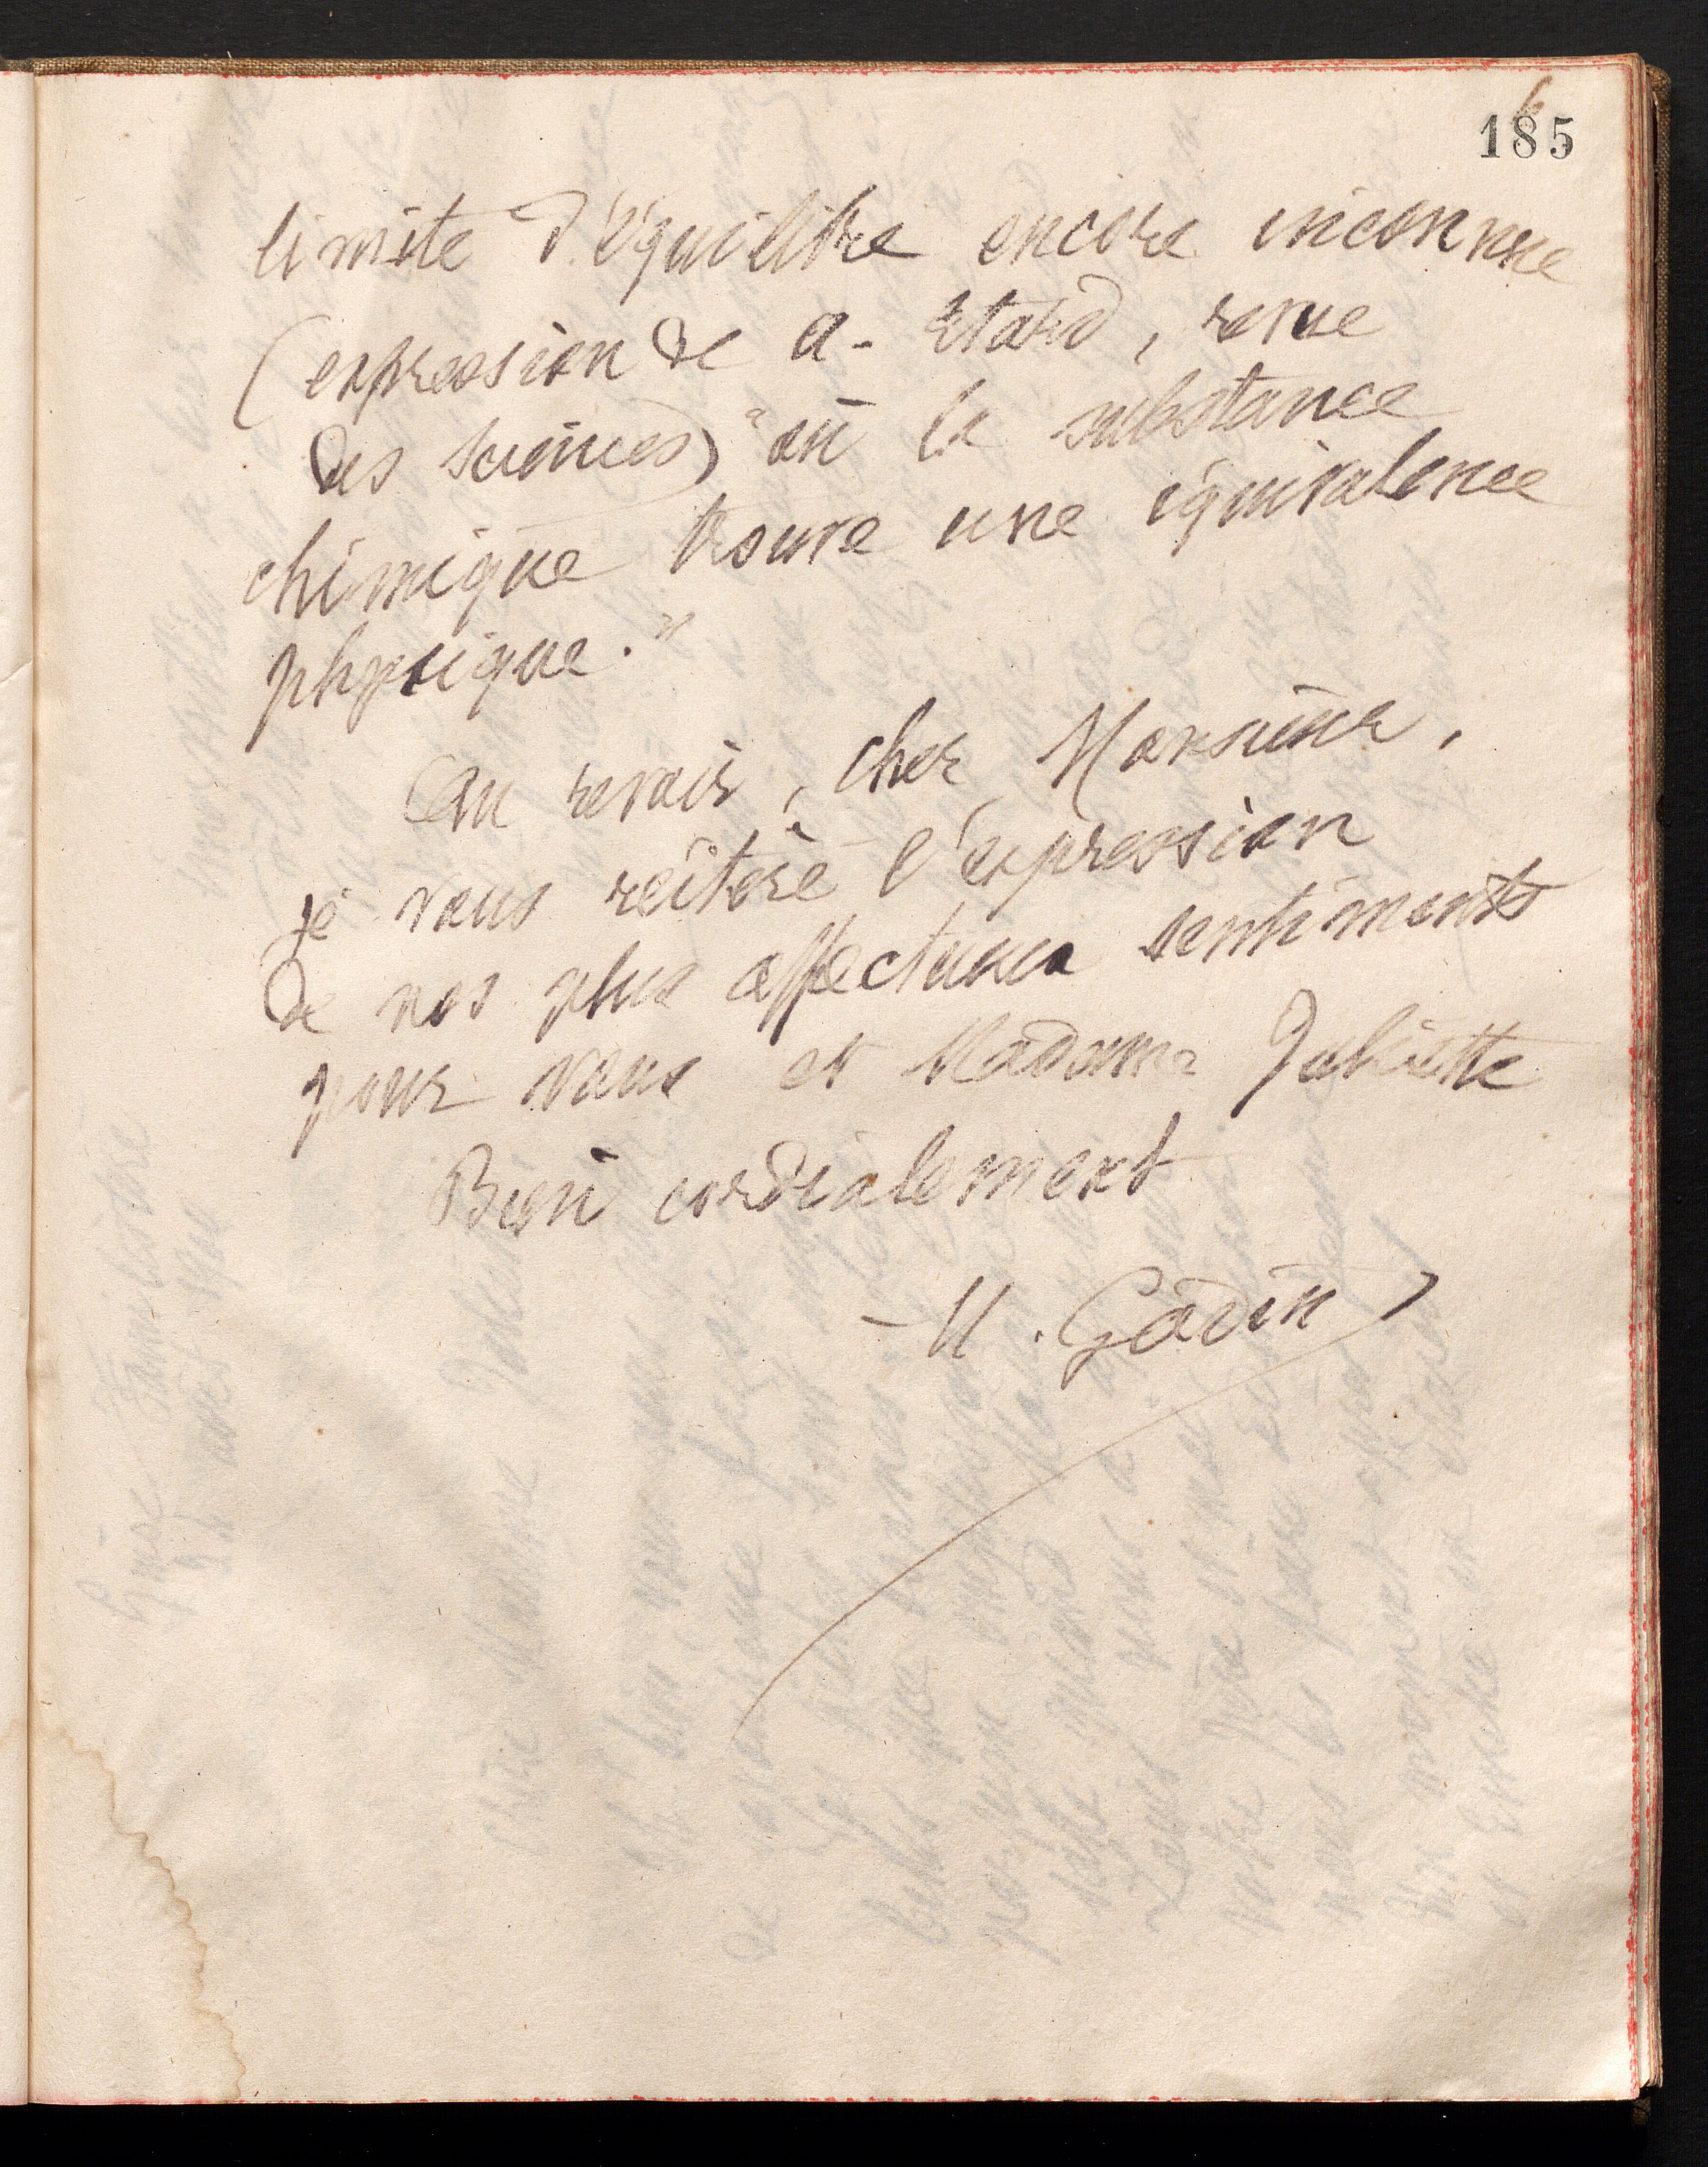 185
limite d'équilibre encore inconnue
(expression de A. Etard, revue
des sciences) "où la substance
chimique trouve une équivalence
physique."
Au revoir, cher Monsieur,
je vous réitère l'expression
de nos plus affectueux sentiments
pour vous et Madame Juliette
Bien cordialement
M. Godin